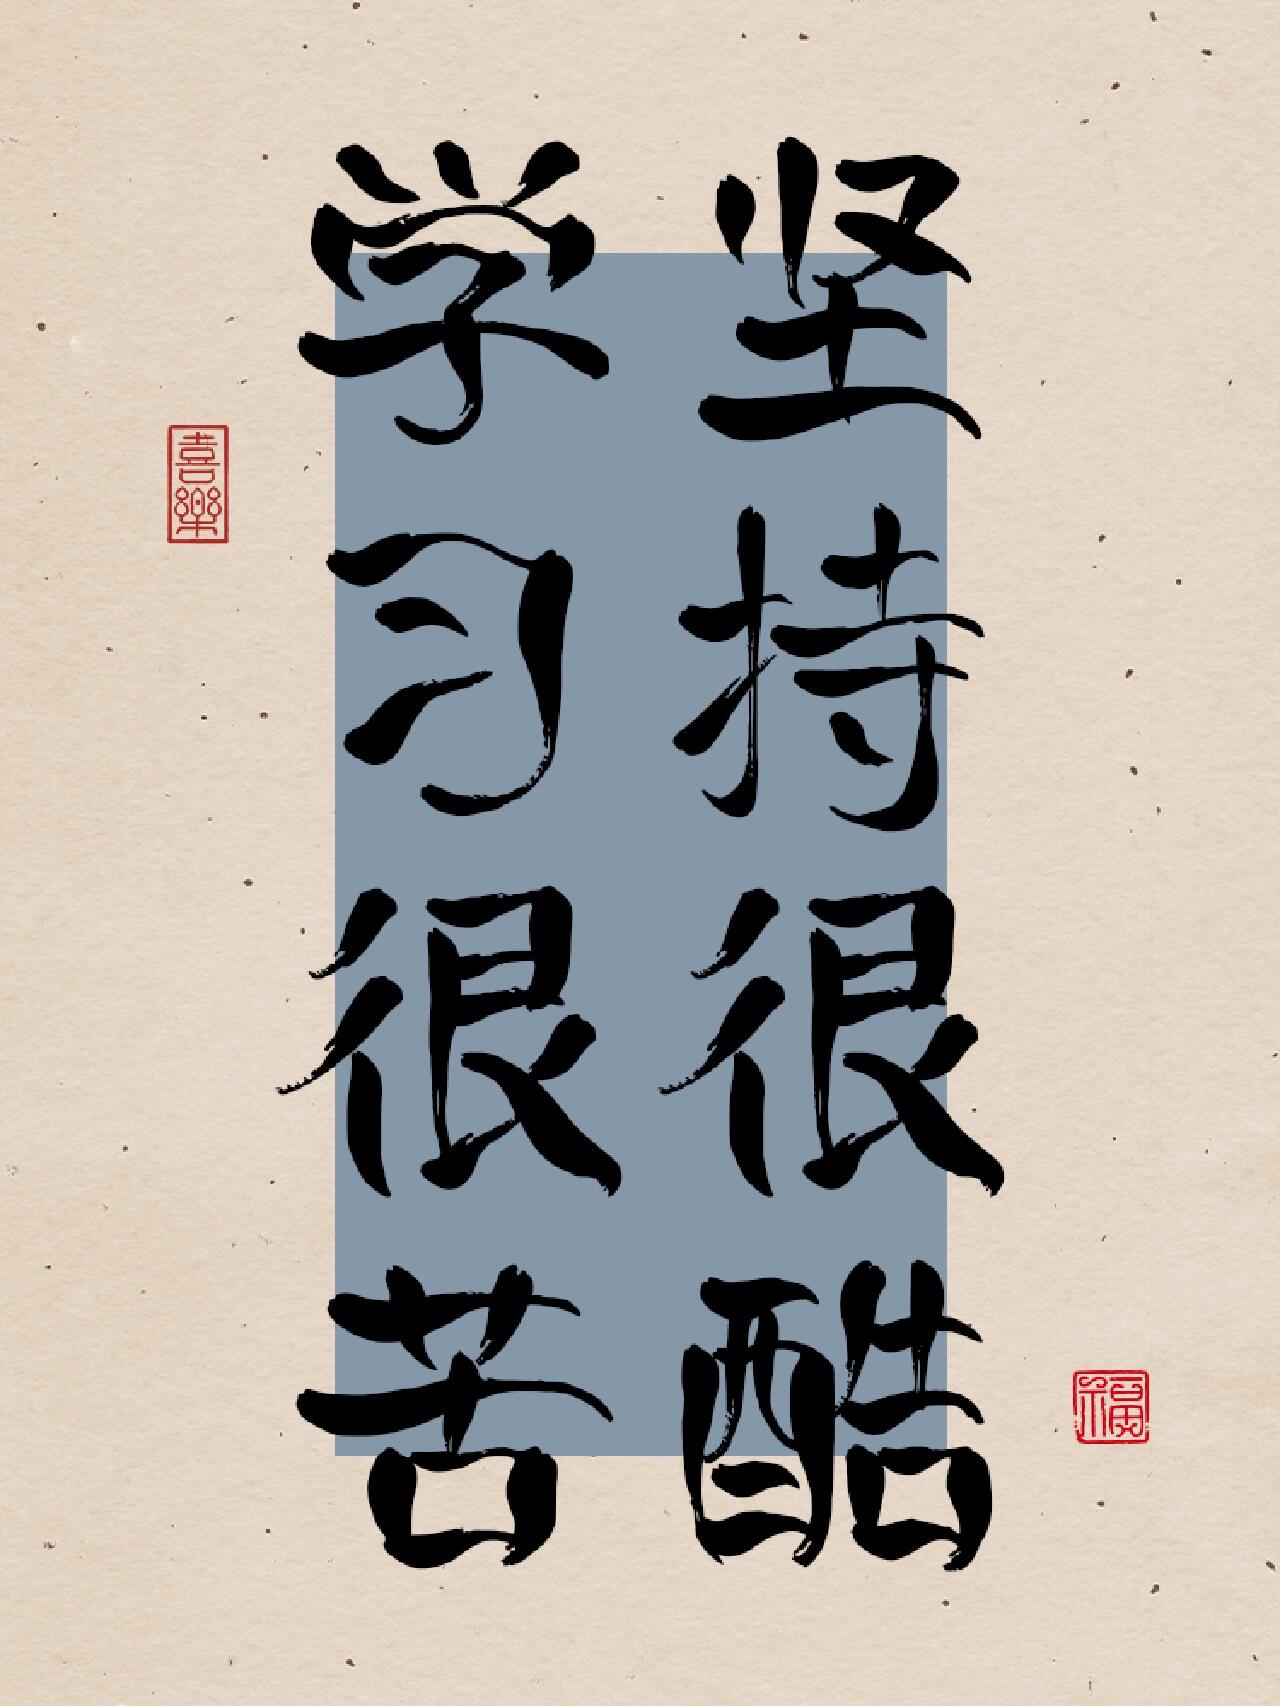 学习很苦
坚持很酷
喜樂
福